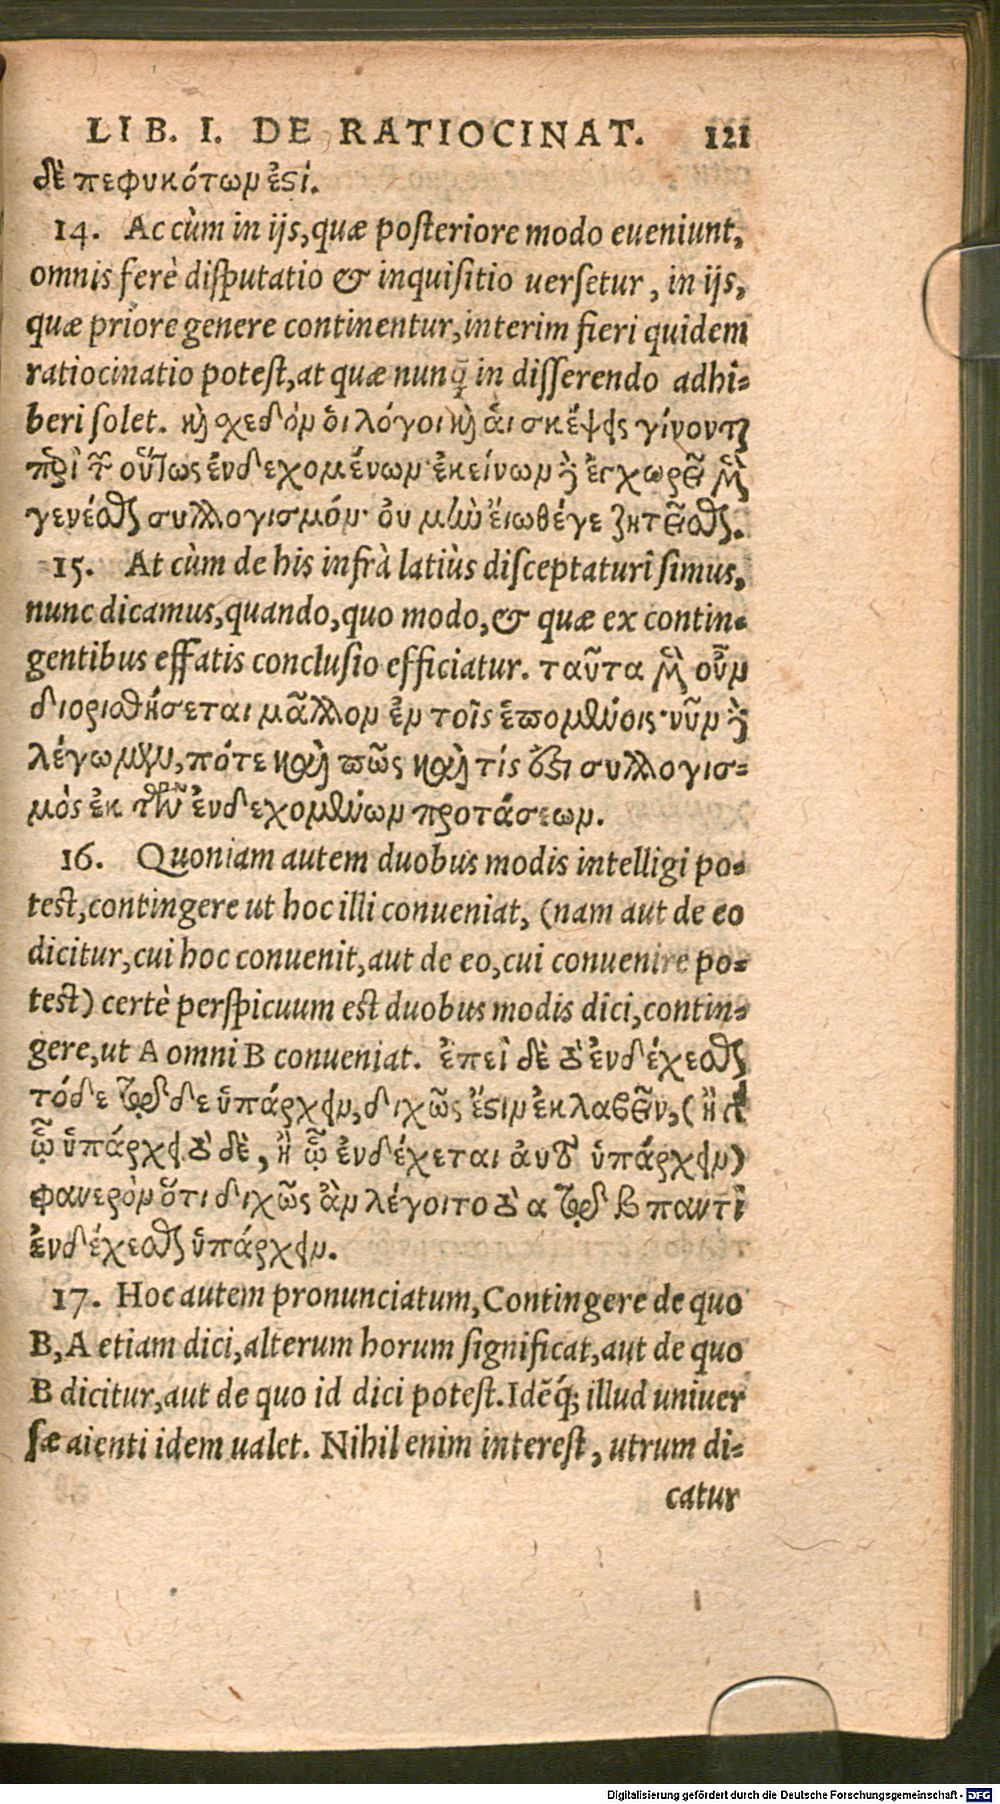 LIB. I. DE RATIOCINAT. 121
δὲ πεφυκότων ἐςί.
14. Ac cùm in ijs, quæ posteriore modo eueniunt,
omnis ferè disputatio & inquisitio uersetur, in ijs,
quæ priore genere continentur, interim fieri quidem
ratiocinatio potest, at quæ nunq̃ in disserendo adhi-
beri solet. καὶ χεδὸν ὁι λόγοι καὶ ἁι σκέψεις γίνονται
περὶ τῶν οὕτως ἐνδεχομένων· ἐκείνων δὲ ἐγχωρεῖ μὲν
γενέσθαι συλλογισμόν· οὐ μὴν ἔιωθέγε ζητεῖσθαι.
15. At cùm de his infrà latiùs disceptaturi simus,
nunc dicamus, quando, quo modo, & quæ ex contin-
gentibus effatis conclusio efficiatur. ταῦτα μὲν οὖν
διορισθήσεται μᾶλλον ἐν τοῖς ἑπομένοις· νῦν δὲ
λέγωμεν, πότε καὶ πῶς καὶ τίς ἔσται συλλογισ-
μὸς ἐκ τῶν ἐνδεχομένων προτάσεων.
16. Quoniam autem duobus modis intelligi po-
test, contingere ut hoc illi conueniat, (nam aut de eo
dicitur, cui hoc conuenit, aut de eo, cui conuenire po-
test) certè perspicuum est duobus modis dici, contin-
gere, ut A omni B conueniat. ἐπεὶ δὲ τὸ ἐνδέχεσθαι
τόδε τῷδε ὑπάρχειν, διχῶς ἔςιν ἐκλαβεῖν, (ἢ
ᾧ ὑπάρχει τὸ δὲ, ἢ ᾧ ἐνδέχεται ἀυτὸ ὑπάρχειν)
φανερὸν ὅτι διχῶς ἂν λέγοιτο τὸ α τῷ β παντὶ
ἐνδέχεσθαι ὑπάρχειν.
17. Hoc autem pronunciatum, Contingere de quo
B, A etiam dici, alterum horum significat, aut de quo
B dicitur, aut de quo id dici potest. Idẽq́; illud uniuer
sæ aienti idem ualet. Nihil enim interest, utrum di-
catur
Digitalisierung gefördert durch die Deutsche Forschungsgemeinschaft - DFG